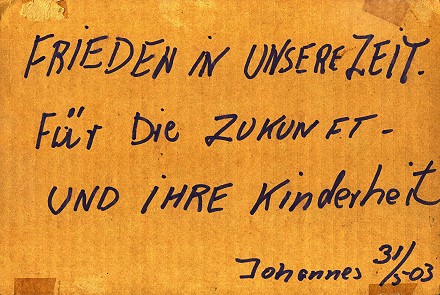 FRIEDEN IN UNSERE ZEIT.
Für Die ZUKUNFT-
UND IHRE Kinderheit
Johannes 31/5-03